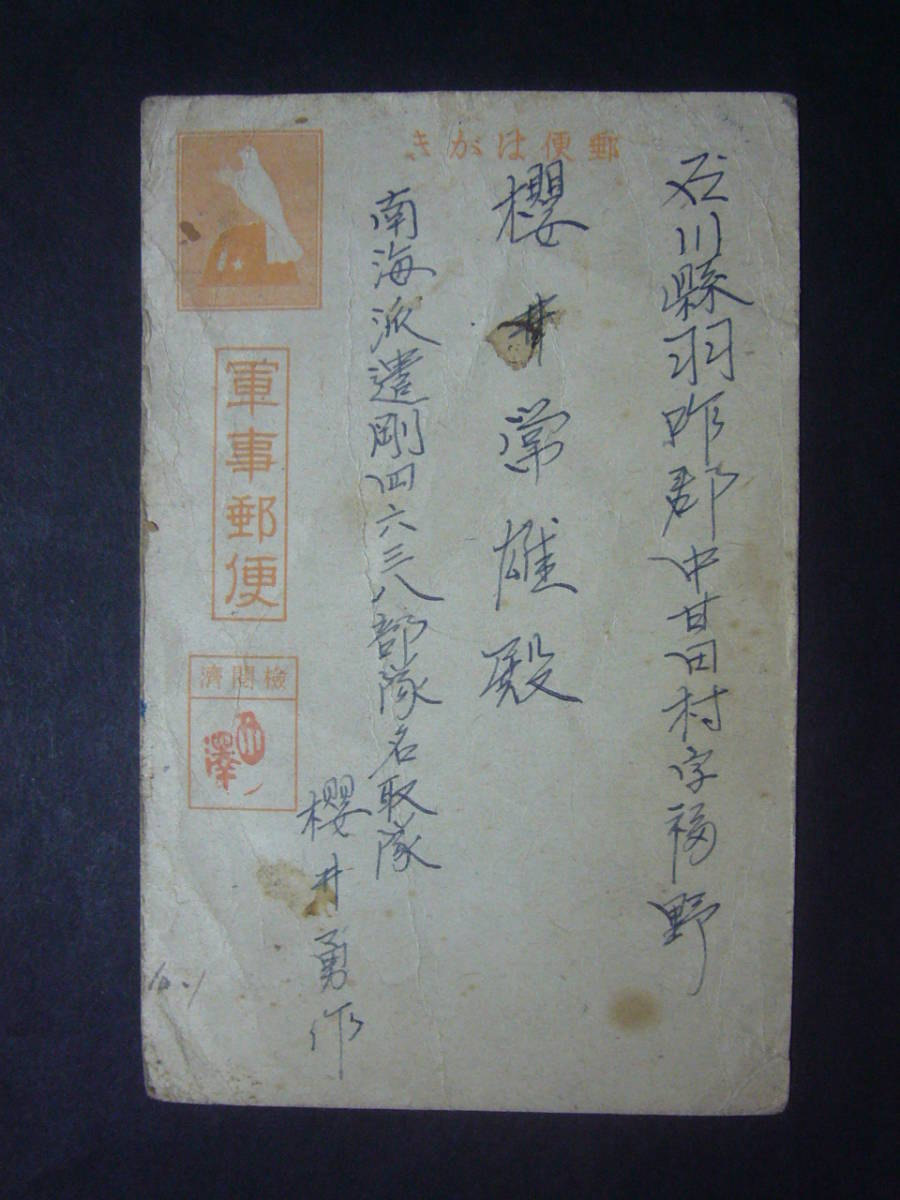 郵便はがき
石川縣羽咋郡中甘田村字福野
櫻井常雄殿
南海派遣剛四六三八部隊名取隊
櫻井勇作
軍事郵便
檢閲濟